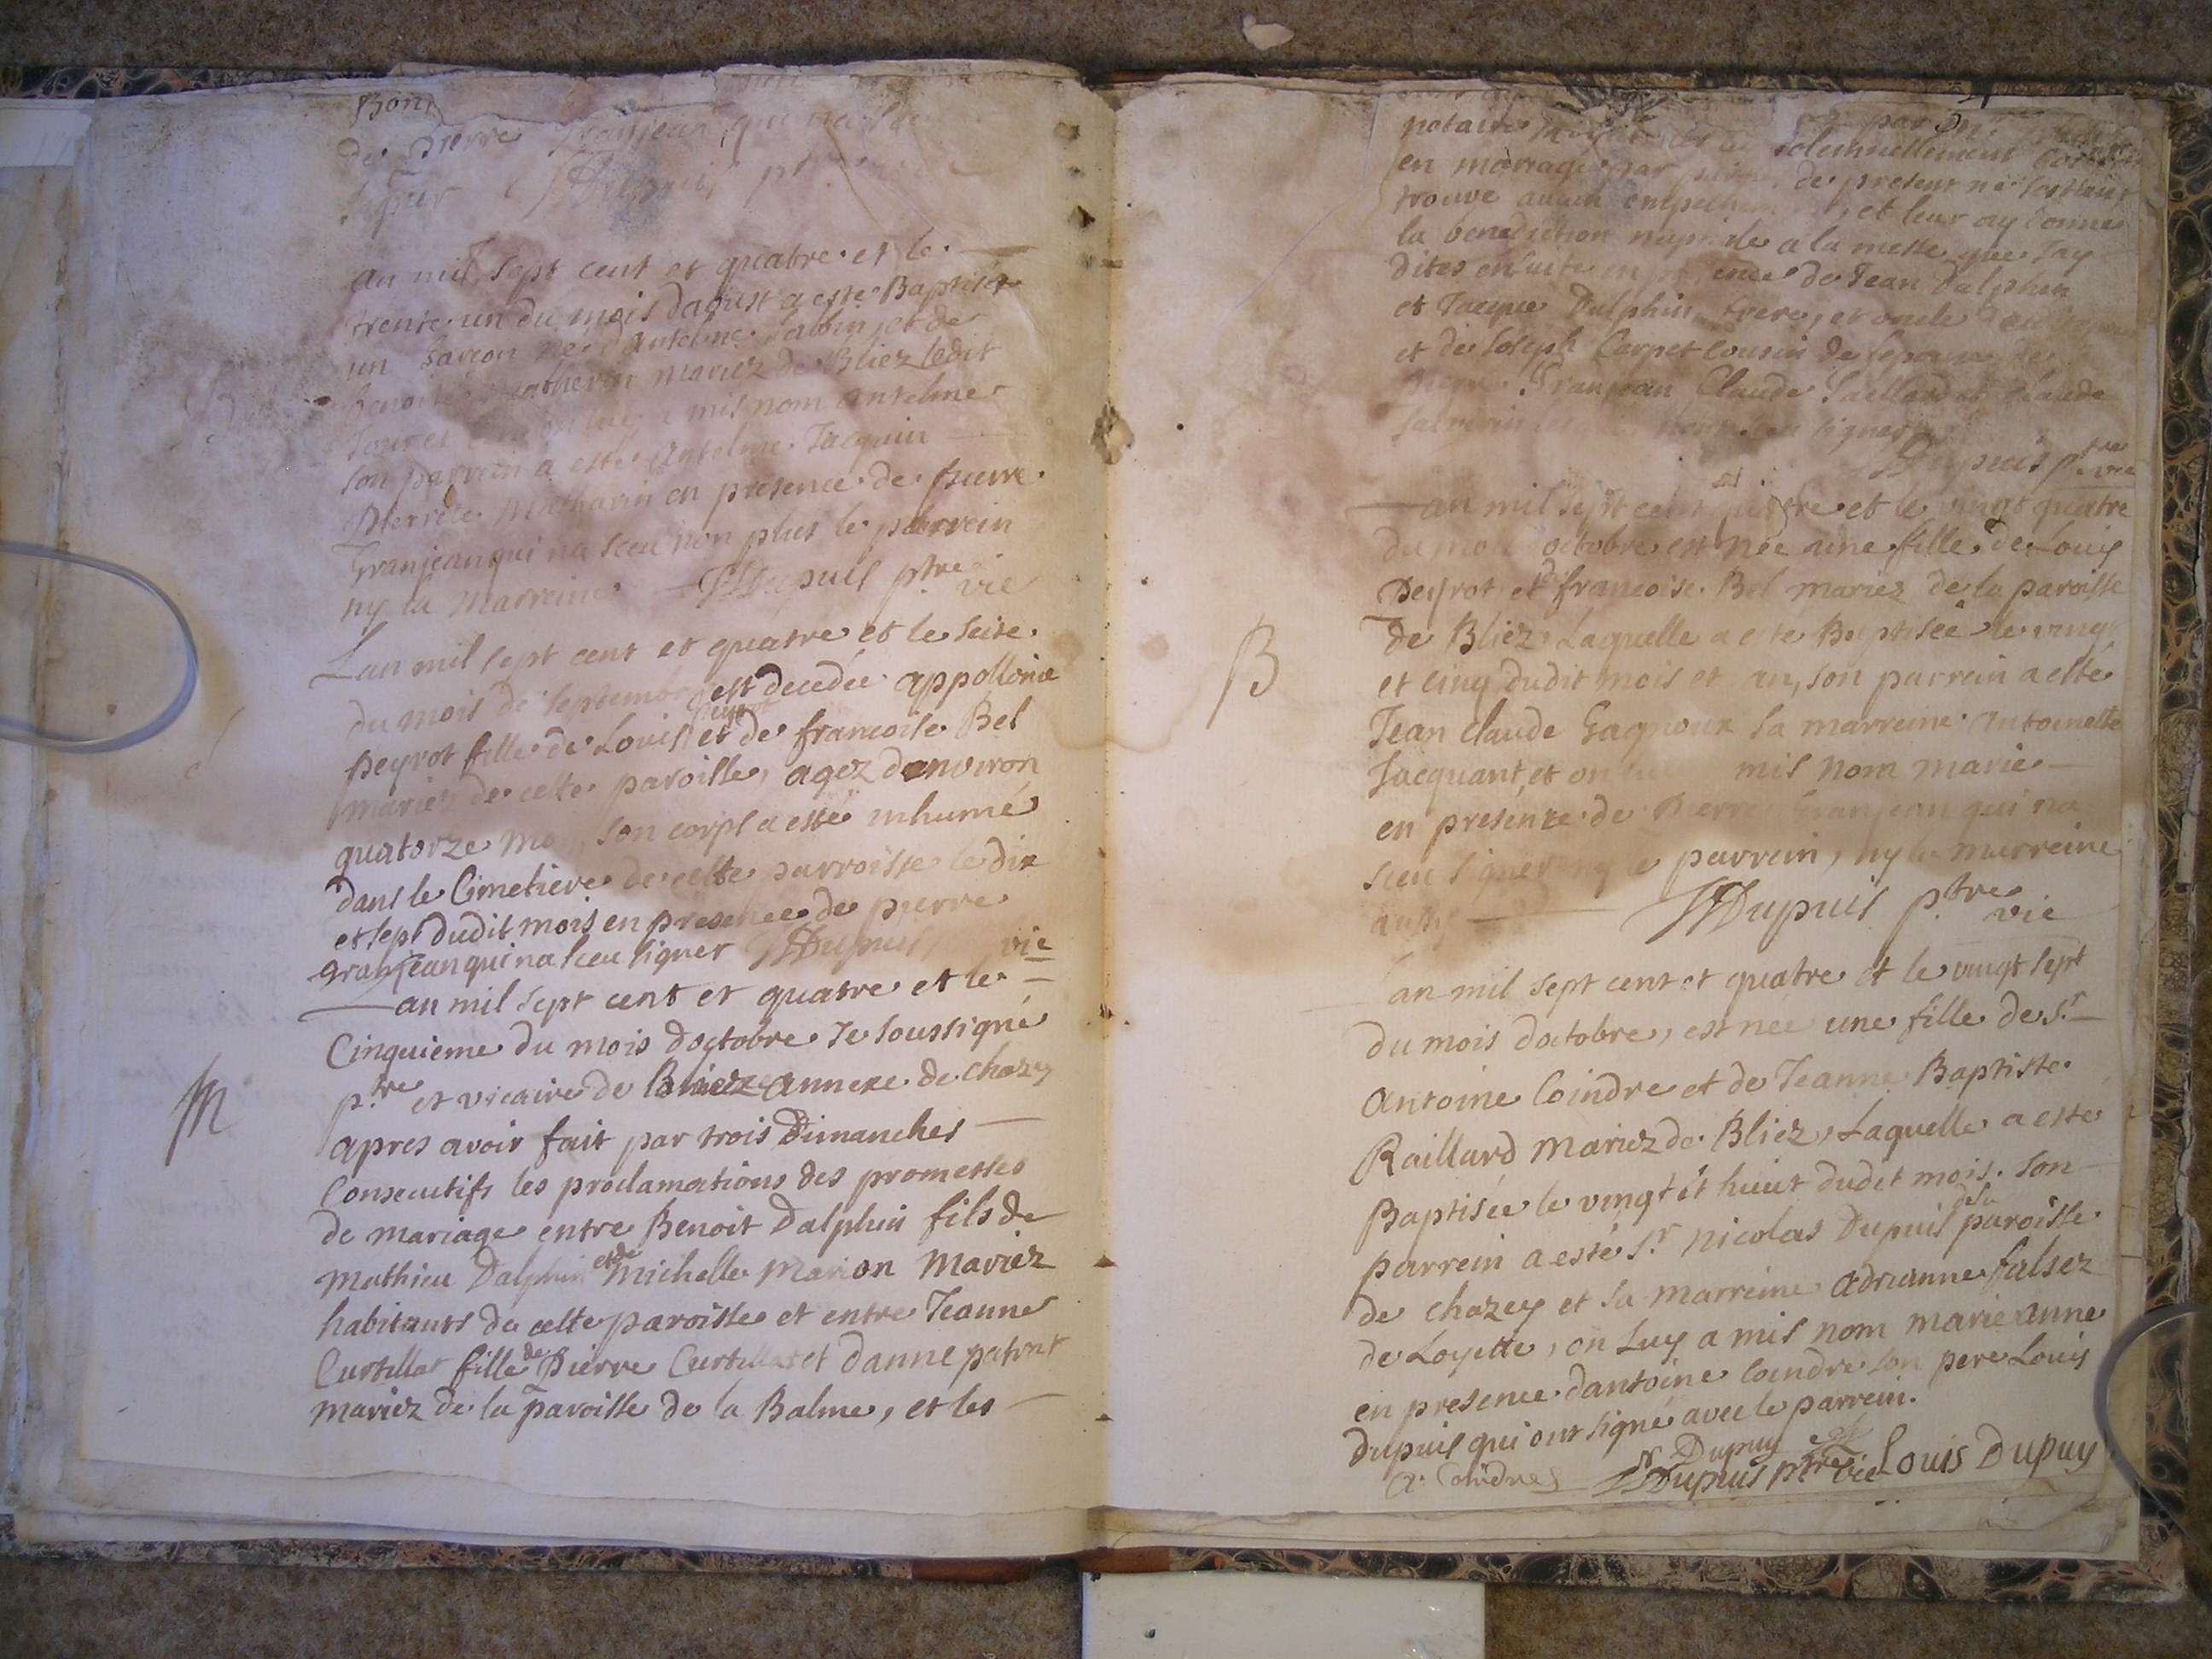 Bon
de pierre granjean qui na sceu
signer Dupuis ptre
an mil sept cent et quatre et le
trente un du mois daoust a esté Baptisé
un garcon né dantelme Jabbin et de
mariez de Bliez ledit
Jour et mis nom antelme
son parrein a esté antelme Jacquin
pierrete Matharin en presence de pierre
Granjean qui na sceu non plus le parrein
ny la Marreine Dupuis ptre vic
Lan mil sept cent et quatre et le seise
du mois de septembre est decedée appollonie
peyrot fille de Louis peyrot et de francoise Bel
mariez de cette paroisse, agez denviron
quatorze mois, son corps a esté inhumé
dans le Cimetiere de cette parroisse le dix
et sept dudit mois en presence de pierre
granjean qui na sceu signer Dupuis vic
an mil sept cent et quatre et le
Cinquieme du mois doctobre Je soussigné
M
ptre et vicaire de Bliez annexe de chazey
apres avoir fait par trois Dimanches
Consecutifs les proclamations des promesses
de mariage entre Benoit Dalphin fils de
Mathieu Dalphin et de Michelle Marion Mariez
habitants de cette paroisse et entre Jeanne
Curtillat fille de Pierre Curtillat et danne patrat
mariez de la paroisse de la Balme, et les
par
notaire solemnellement
en mariage par de present ne sestant
trouve aucun empechement, et leur ay donné
la benediction nuptiale a la messe que Jay
dites ensuite en presence de Jean Dalphin
et Jacque Dalphin frere, et oncle
et de Joseph Carpet Cousin de lepouse
Granjean Claude Paillard et claude
signer
Dupuis ptre vic
an mil sept cent quatre et le vingt quatre
du mois doctobre est née une fille de Louis
B
Peyrot et de francoise Bel mariez de la paroisse
de Bliez, Laquelle a esté Baptisée le vingt
et cinq dudit mois et an, son parrein a esté
Jean Claude Gagnoux sa marreine antoinette
Jacquant, et on luy mis nom marie
en presence de Pierre Granjean qui na
sceu signer ny le parrein, ny la marreine
aussy Dupuis ptre vic
an mil sept cent et quatre et le vingt sept
du mois doctobre, est née une fille de Sr
Antoine Coindre et de Jeanne Baptiste
Raillard Mariez de Bliez, Laquelle a esté
Baptisée le vingt et huict dudit mois. son
parrein a esté Sr nicolas Dupuis de la paroisse
de chazey et sa marreine adrianne falsez
de Loyette, on Luy a mis nom marie anne
en presence dantoine Coindre son pere Louis
dupuis qui ont signé avec le parrein.
A. Coindre N Dupuy Dupuis ptre vic Louis Dupuy